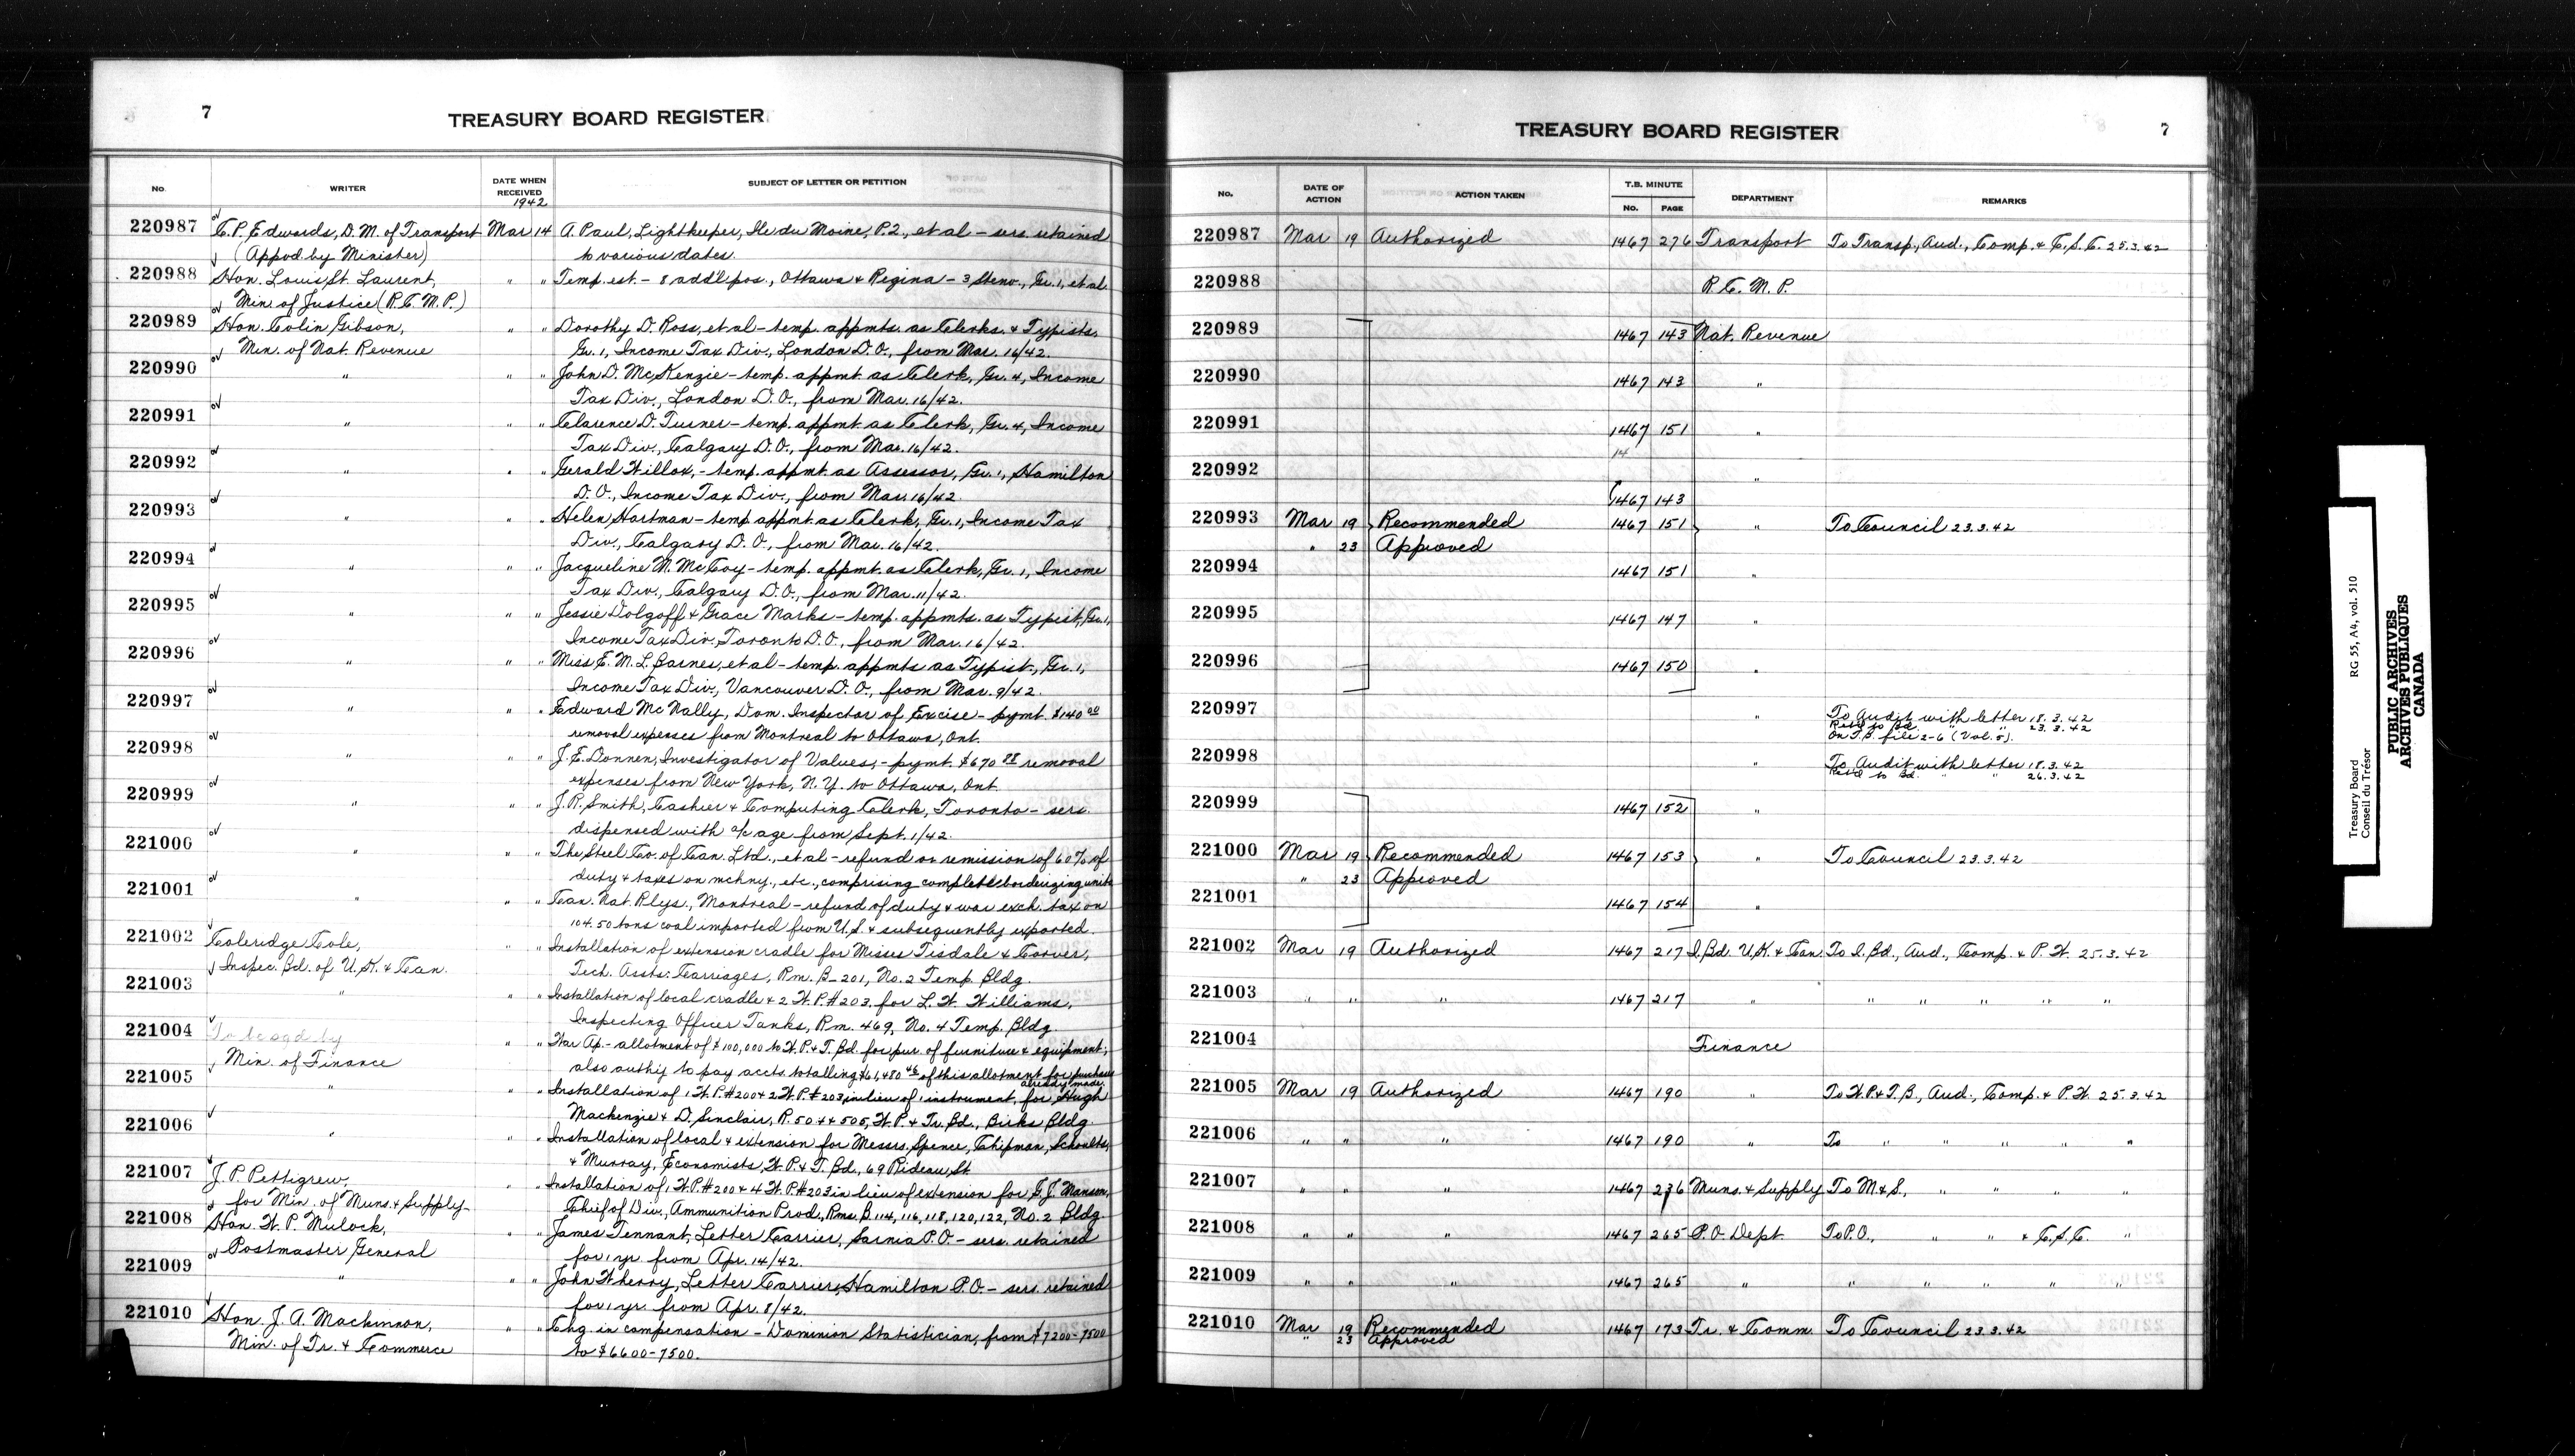 7
TREASURY BOARD REGISTER
No.
WRITER
DATE WHEN
RECEIVED
1942
SUBJECT OF LETTER OR PETITION
220987 C. P. Edwards, D. M. of Transport Mar 14 A. Paul, Lightkeeper, Ile du Moine, P.Q., et al - sers. retained
(Appvd. by Minister) to various dates.
220988 Hon. Louis St. Laurent, " " Temp. est. - 8 add'l pos., Ottawa & Regina - 3 Steno., Gr. 1, et al.
Min. of Justice (R. C. M. P.)
220989 Hon. Colin Gibson, " " Dorothy D. Ross, et al - temp. appmts. as Clerks & Typists,
Min. of Nat. Revenue Gr. 1, Income Tax Div., London D. O., from Mar. 16/42.
220990 " " " John D. McKenzie - temp. appmt. as Clerk, Gr. 4, Income
Tax Div., London D. O., from Mar. 16/42.
220991 " " " Clarence D. Turner - temp. appmt. as Clerk, Gr. 4, Income
Tax Div., Calgary D. O., from Mar. 16/42.
220992 " " " Gerald Willox, - temp. appmt. as Assessor, Gr. 1, Hamilton
D. O., Income Tax Div., from Mar. 16/42.
220993 " " " Helen Hartman - temp. appmt. as Clerk, Gr. 1, Income Tax
Div., Calgary D. O., from Mar. 16/42.
220994 " " " Jacqueline M. McCoy - temp. appmt. as Clerk, Gr. 1, Income
Tax Div., Calgary D. O., from Mar. 11/42.
220995 " " " Jessie Dolgoff & Grace Marks - temp. appmts. as Typist, Gr. 1,
Income Tax Div., Toronto D. O., from Mar. 16/42.
220996 " " " Miss E. M. L. Barnes, et al - temp. appmts as Typist., Gr. 1,
Income Tax Div., Vancouver D. O., from Mar. 9/42.
220997 " " " Edward McNally, Dom. Inspector of Excise - pymt. $140.00
removal expenses from Montreal to Ottawa, Ont.
220998 " " " J. E. Donnen, Investigator of Values, - pymt. $670 removal
expenses from New York, N. Y. to Ottawa, Ont.
220999 " " " J. R. Smith, Cashier & Computing Clerk, Toronto - sers.
dispensed with a/c age from Sept. 1/42.
221000 " " " The Steel Co. of Can. Ltd., et al - refund or remission of 60% of
duty & taxes on mchny., etc., comprising complete bonderizing unit
221001 " " " Can. Nat. Rlys., Montreal - refund of duty & war exch. tax on
104.50 tons coal imported from U.S. & subsequently exported.
221002 Coleridge Cole, " " Installation of extension cradle for Misses Tisdale & Carver,
Inspec. Bd. of U.K. & Can. Tech. Assts. Carriages, Rm. B-201, No. 2 Temp. Bldg.
221003 " " " Installation of local cradle & 2 W.P. #203 for L. W. Williams,
Inspecting Officer Tanks, Rm. 469, No. 4 Temp. Bldg.
221004 To be sgd by " " War Ap. - allotment of $100,000 to W.P. & T. Bd. for pur. of furniture & equipment;
Min. of Finance also authy to pay accts. totalling $61,480.46 of this allotment for purchases
already made.
221005 " " " Installation of 1 W.P. #200 & 2 W.P. #203 in lieu of 1 instrument, for Hugh
Mackenzie & D. Sinclair, R. 504 & 505, W.P. & Tr. Bd., Birks Bldg.
221006 " " " Installation of local & extension for Messrs. Spence, Chipman, Schoults,
& Murray, Economists, W.P. & T. Bd., 69 Rideau St.
221007 J. P. Pettigrew, " " Installation of 1 W.P. #200 & 4 W.P. #203 in lieu of extension for G. J. Manson,
for Min. of Muns. & Supply Chief of Div., Ammunition Prod., Rms. B 114, 116, 118, 120, 122, No. 2 Bldg.
221008 Hon. W. P. Mulock, " " James Tennant, Letter Carrier, Sarnia P.O. - sers. retained
Postmaster General for 1 yr. from Apr. 14/42.
221009 " " " John Wherry, Letter Carrier, Hamilton P.O. - sers. retained
for 1 yr. from Apr. 8/42.
221010 Hon. J. A. Mackinnon, " " Chg. in compensation - Dominion Statistician, from $7200-7500
Min. of Tr. & Commerce to $6600-7500.
TREASURY BOARD REGISTER
7
No.
DATE OF
ACTION
ACTION TAKEN
T.B. MINUTE
No. PAGE
DEPARTMENT
REMARKS
220987 Mar 19 Authorized 1467 276 Transport To Transp., Aud., Comp. & C.S.C. 25.3.42
220988 R. C. M. P.
220989 1467 143 Nat. Revenue
220990 1467 143 "
220991 1467 151 "
14
220992 "
1467 143
220993 Mar 19 Recommended 1467 151 " To Council 23.3.42
" 23 Approved
220994 1467 151 "
220995 1467 147 "
220996 1467 150 "
220997 " To Audit with letter 18.3.42
Ret'd to Bd. " " 23.3.42
On T.B. file 2-6 (Vol. 5).
220998 " To Audit with letter 18.3.42
Ret'd to Bd. " " 26.3.42
220999 1467 152 "
221000 Mar 19 Recommended 1467 153 " To Council 23.3.42
" 23 Approved
221001 1467 154 "
221002 Mar 19 Authorized 1467 217 I. Bd. U.K. & Can. To I. Bd., Aud., Comp. & P. W. 25.3.42
221003 " " " 1467 217 " " " " " "
221004 Finance
221005 Mar 19 Authorized 1467 190 " To W.P. & T.B., Aud., Comp. & P. W. 25.3.42
221006 " " " 1467 190 " To " " " " "
221007 " " " 1467 236 Muns. & Supply To M & S., " " " "
221008 " " " 1467 265 P.O. Dept. To P.O., " " & C.S.C. "
221009 " " " 1467 265 " " " " " "
221010 Mar 19 Recommended 1467 173 Tr. & Comm. To Council 23.3.42
" 23 Approved
Treasury Board
Conseil du Trésor
RG 55, A4, vol. 510
PUBLIC ARCHIVES
ARCHIVES PUBLIQUES
CANADA